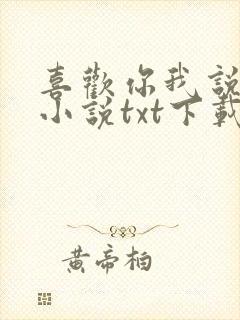 喜歡你我說
小說txt下載
黃帝柏